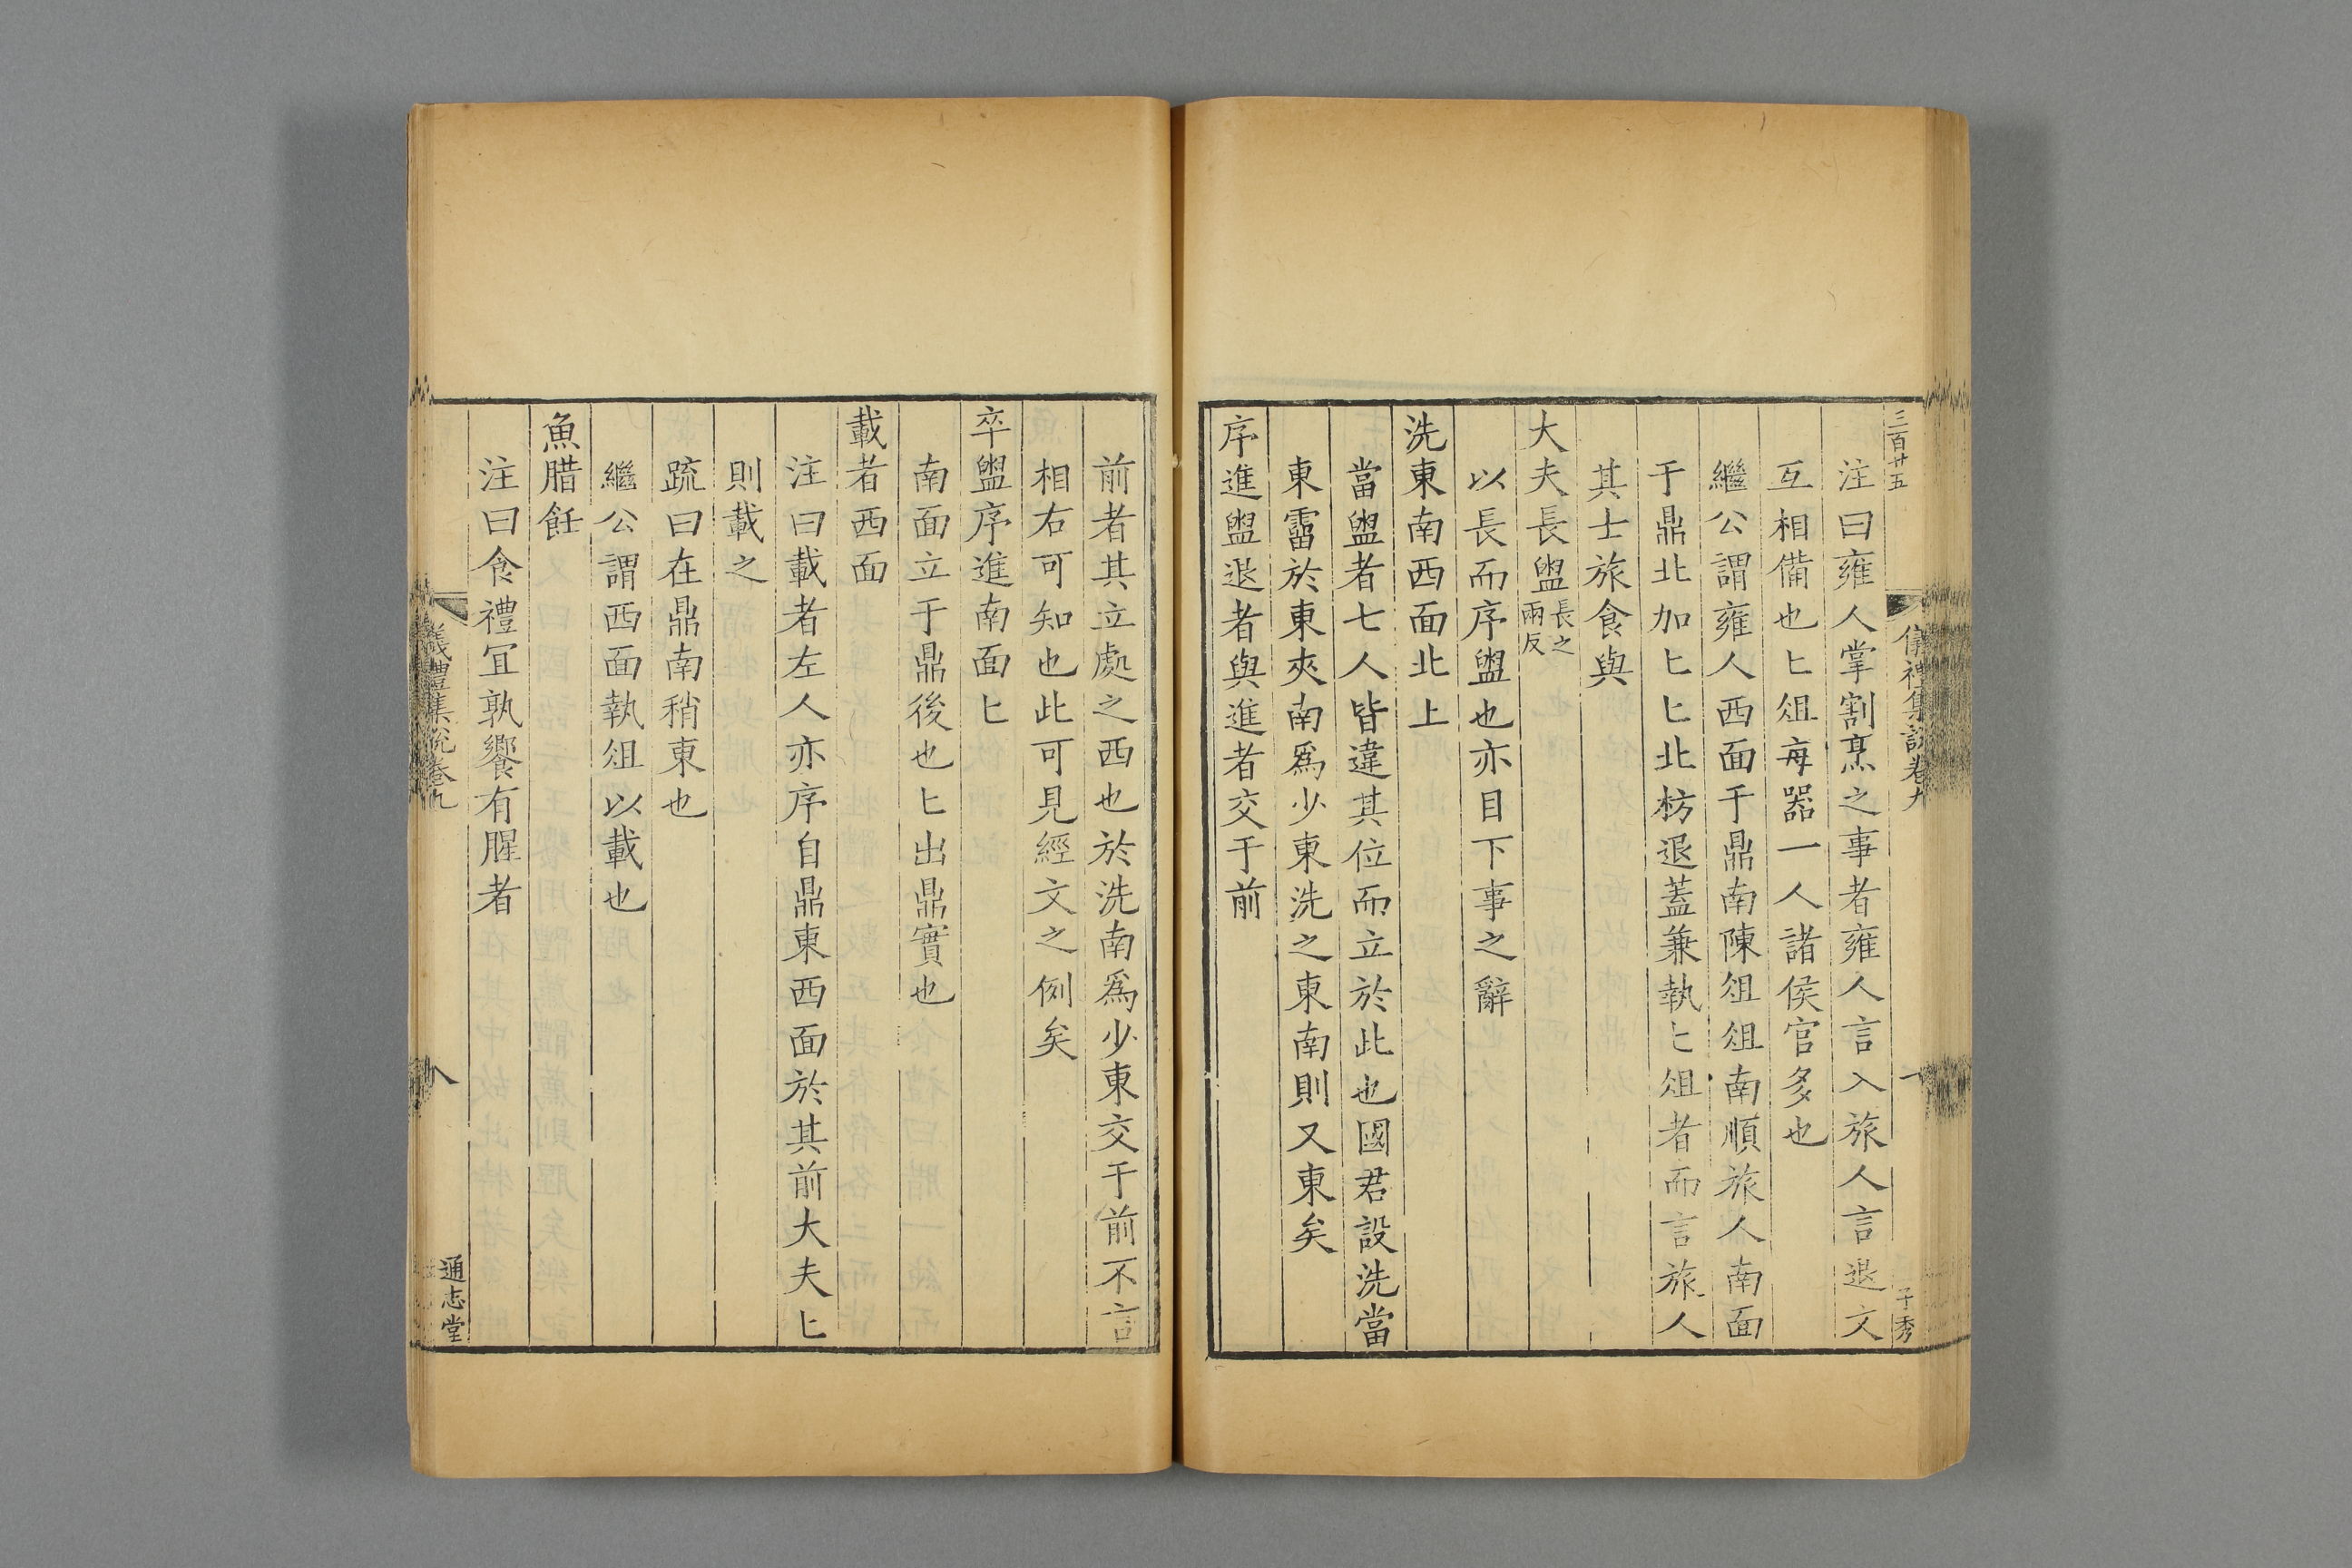 三百廿五
儀禮集說卷九
子秀
注曰雍人掌割亯之事者雍人言入旅人言退文
互相備也匕俎每器一人諸侯官多也
繼公謂雍人西面于鼎南陳俎俎南順旅人南面
于鼎北加匕匕北枋退蓋兼執匕俎者而言旅人
其士旅食與
大夫長盥長之兩反
以長而序盥也亦目下事之辭
洗東南西面北上
當盥者七人皆違其位而立於此也國君設洗當
東霤於東夾南爲少東洗之東南則又東矣
序進盥退者與進者交于前
前者其立處之西也於洗南爲少東交于前不言
相右可知也此可見經文之例矣
卒盥序進南面匕
南面立于鼎後也匕出鼎實也
載者西面
注曰載者左人亦序自鼎東西面於其前大夫匕
則載之
疏曰在鼎南稍東也
繼公謂西面執俎以載也
魚腊飪
注曰食禮宜孰饗有腥者
儀禮集說卷九
八
通志堂